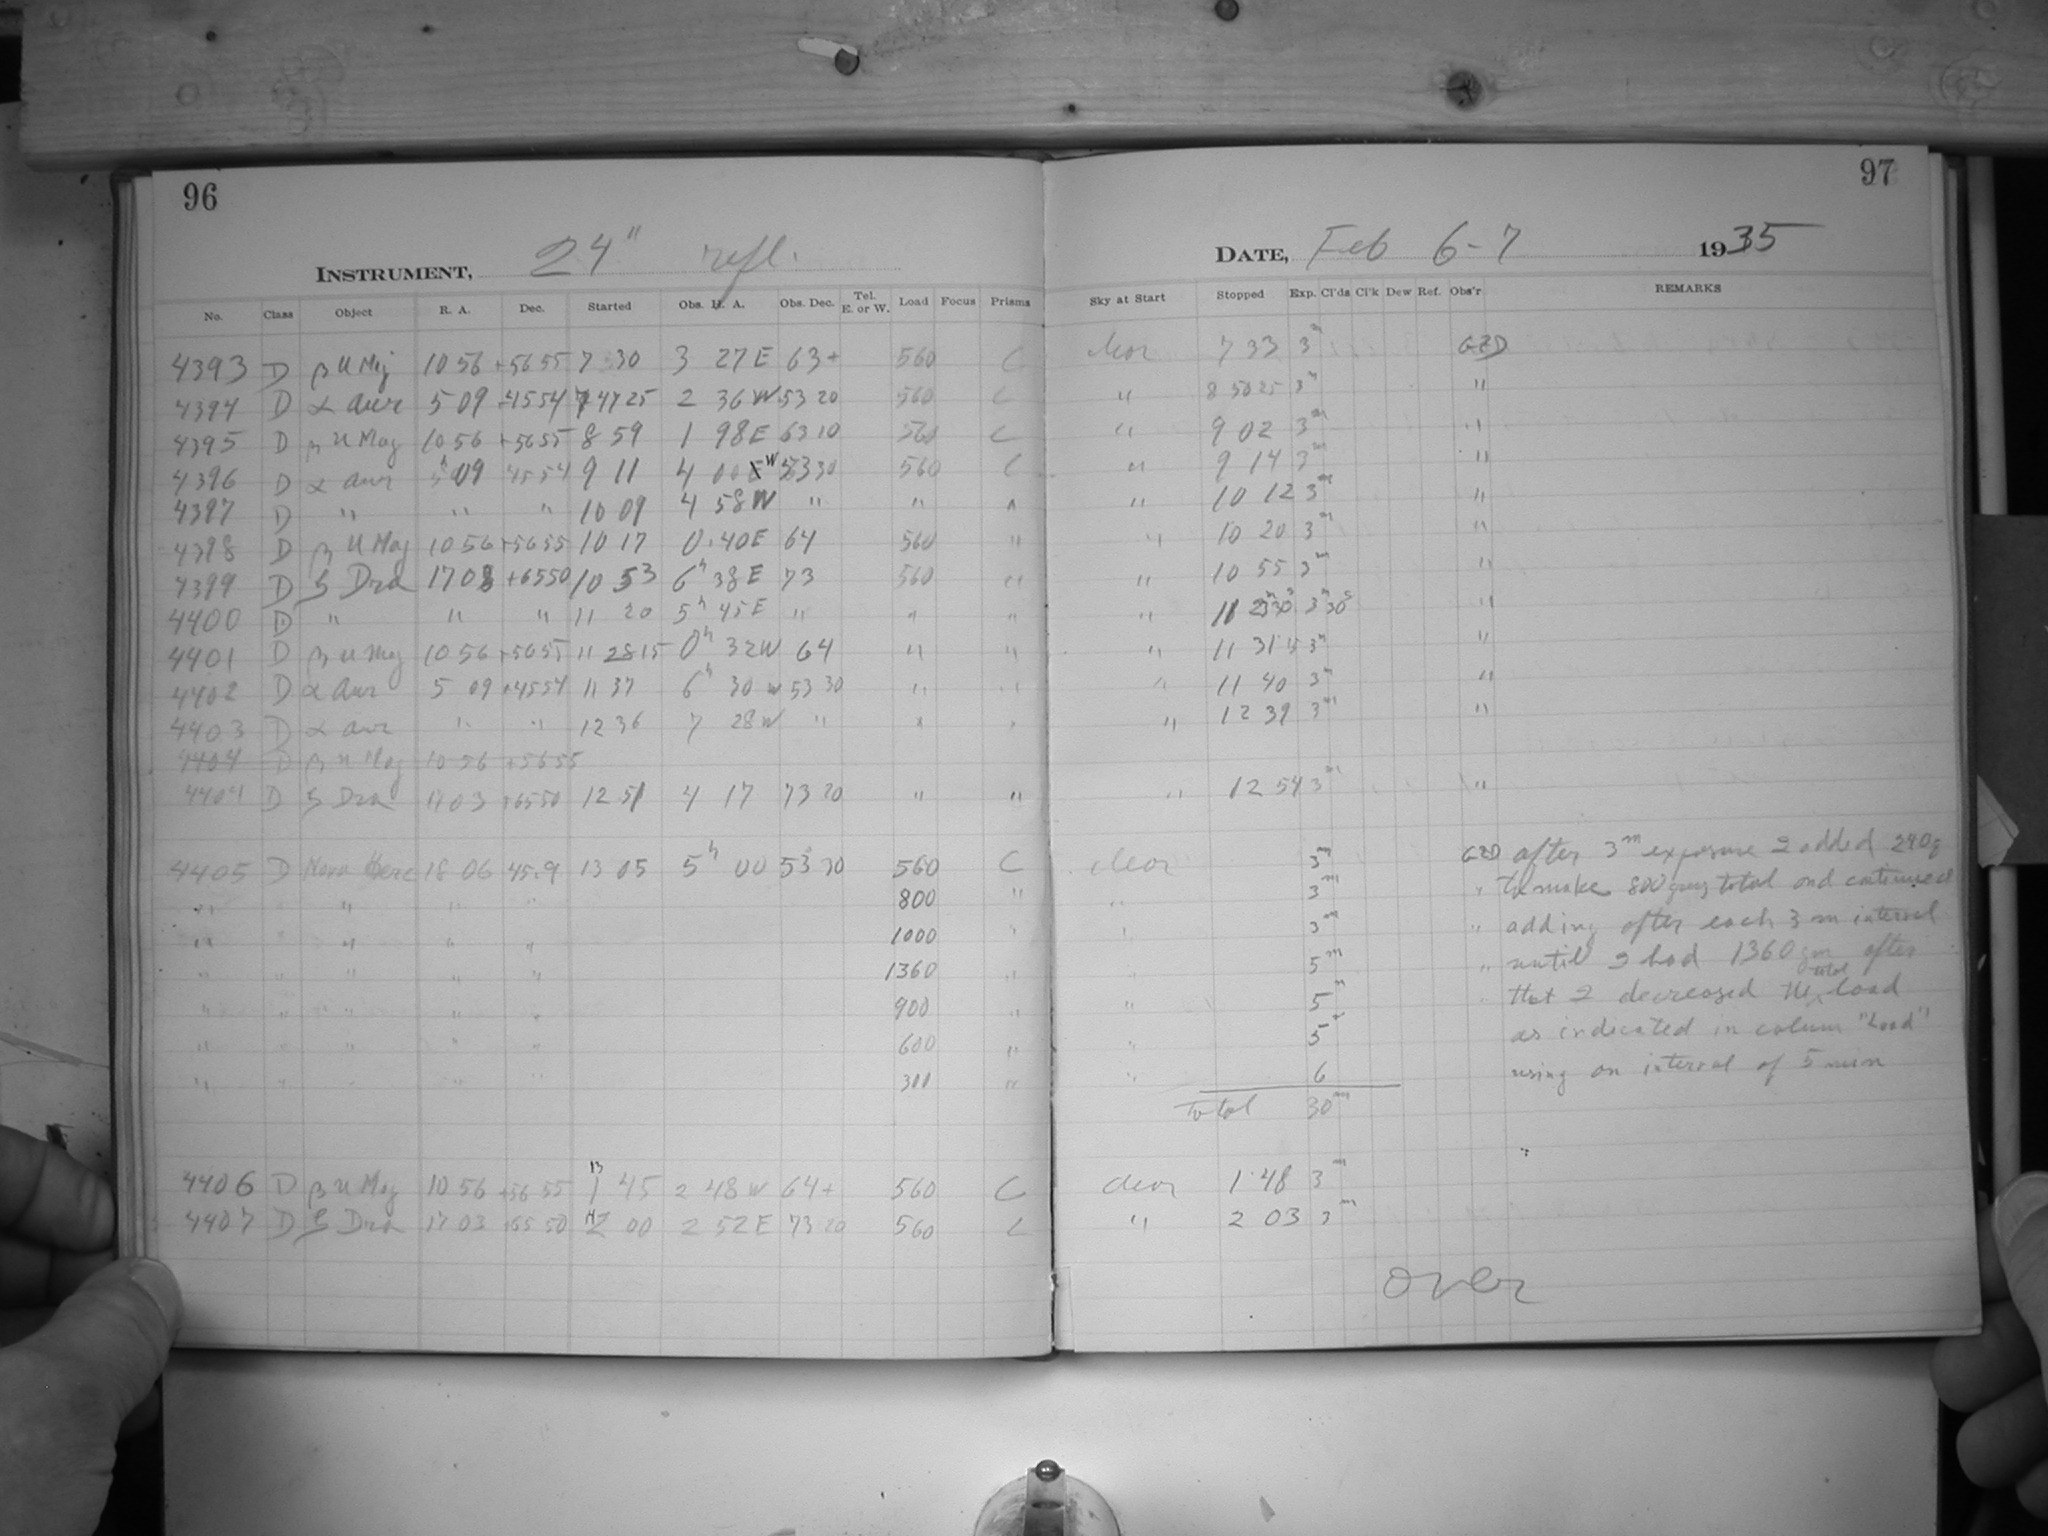 96
97
INSTRUMENT, 24" refl.
DATE, Feb 6-7 1935
No. Class Object R. A. Dec. Started Obs. H. A. Obs. Dec. Tel. E. or W. Load Focus Prisms Sky at Start Stopped Exp. Cl'ds Cl'k Dew Ref. Obs'r REMARKS
4393 D β U Mij 10 56 +56 55 7 30 3 27 E 63+ 560 C clear 7 33 3m GZD
4394 D α Aur 5 09 +45 54 47 25 2 36 W 53 20 560 C " 8 50 25 3m "
4395 D β U Maj 10 56 +56 55 8 59 1 98 E 63 10 560 C " 9 02 3m "
4396 D α Aur 5h 09 45 54 9 11 4 00 W 53 30 560 C " 9 14 3m "
4397 D " " " 10 09 4 58 W " " " 10 12 3m "
4398 D β U Maj 10 56 +56 55 10 17 0 40 E 64 560 " " 10 20 3m "
4399 D ζ Dra 17 03 +65 50 10 53 6h 38 E 73 560 " " 10 55 3m "
4400 D " " " 11 20 5h 45 E " " " " 11 23m30s 3m30s "
4401 D β U Maj 10 56 +56 55 11 28 15 0h 32 W 64 " " " 11 31 15 3m "
4402 D α Aur 5 09 +45 54 11 37 6h 30 W 53 30 " " " 11 40 3m "
4403 D α Aur " " 12 36 7 28 W " " " " 12 39 3m "
4404 D β U Maj 10 56 +56 55
4404 D ζ Dra 17 03 +65 50 12 51 4 17 73 20 " " " 12 54 3m "
4405 D Nova Herc 18 06 45.9 13 05 5h 00 53 30 560 C clear 3m GZD after 3m exposure I added 240g
" " " " " 800 " " 3m " to make 800 gms total and continued
" " " " " 1000 " " 3m " adding after each 3 m interval
" " " " " 1360 " " 5m " until I had 1360 gm after
" " " " " 900 " " 5m " that I decreased the total load
" " " " " 600 " " 5m as indicated in column "Load"
" " " " " 300 " " 6 using an interval of 5 min
Total 30m
4406 D β U Maj 10 56 +56 55 13 1 45 2 48 W 64+ 560 C clear 1 48 3m
4407 D ζ Dra 17 03 +65 50 14 2 00 2 52 E 73 20 560 C " 2 03 3m
over